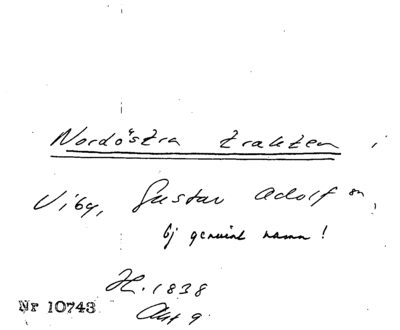 Nordöstra trakten i
Viby, Gustav Adolf sn,
Ej genuint namn!
H. 1838
Akt 9
Nr 10743